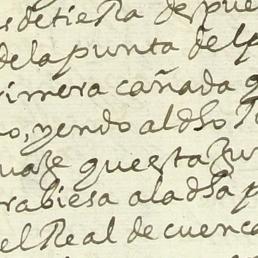 s de tierra despue
de la punta del p
rimera cañada q
o, yendo al dho
que esta Jun
rabiesa a la dha p
el Real de cuenca